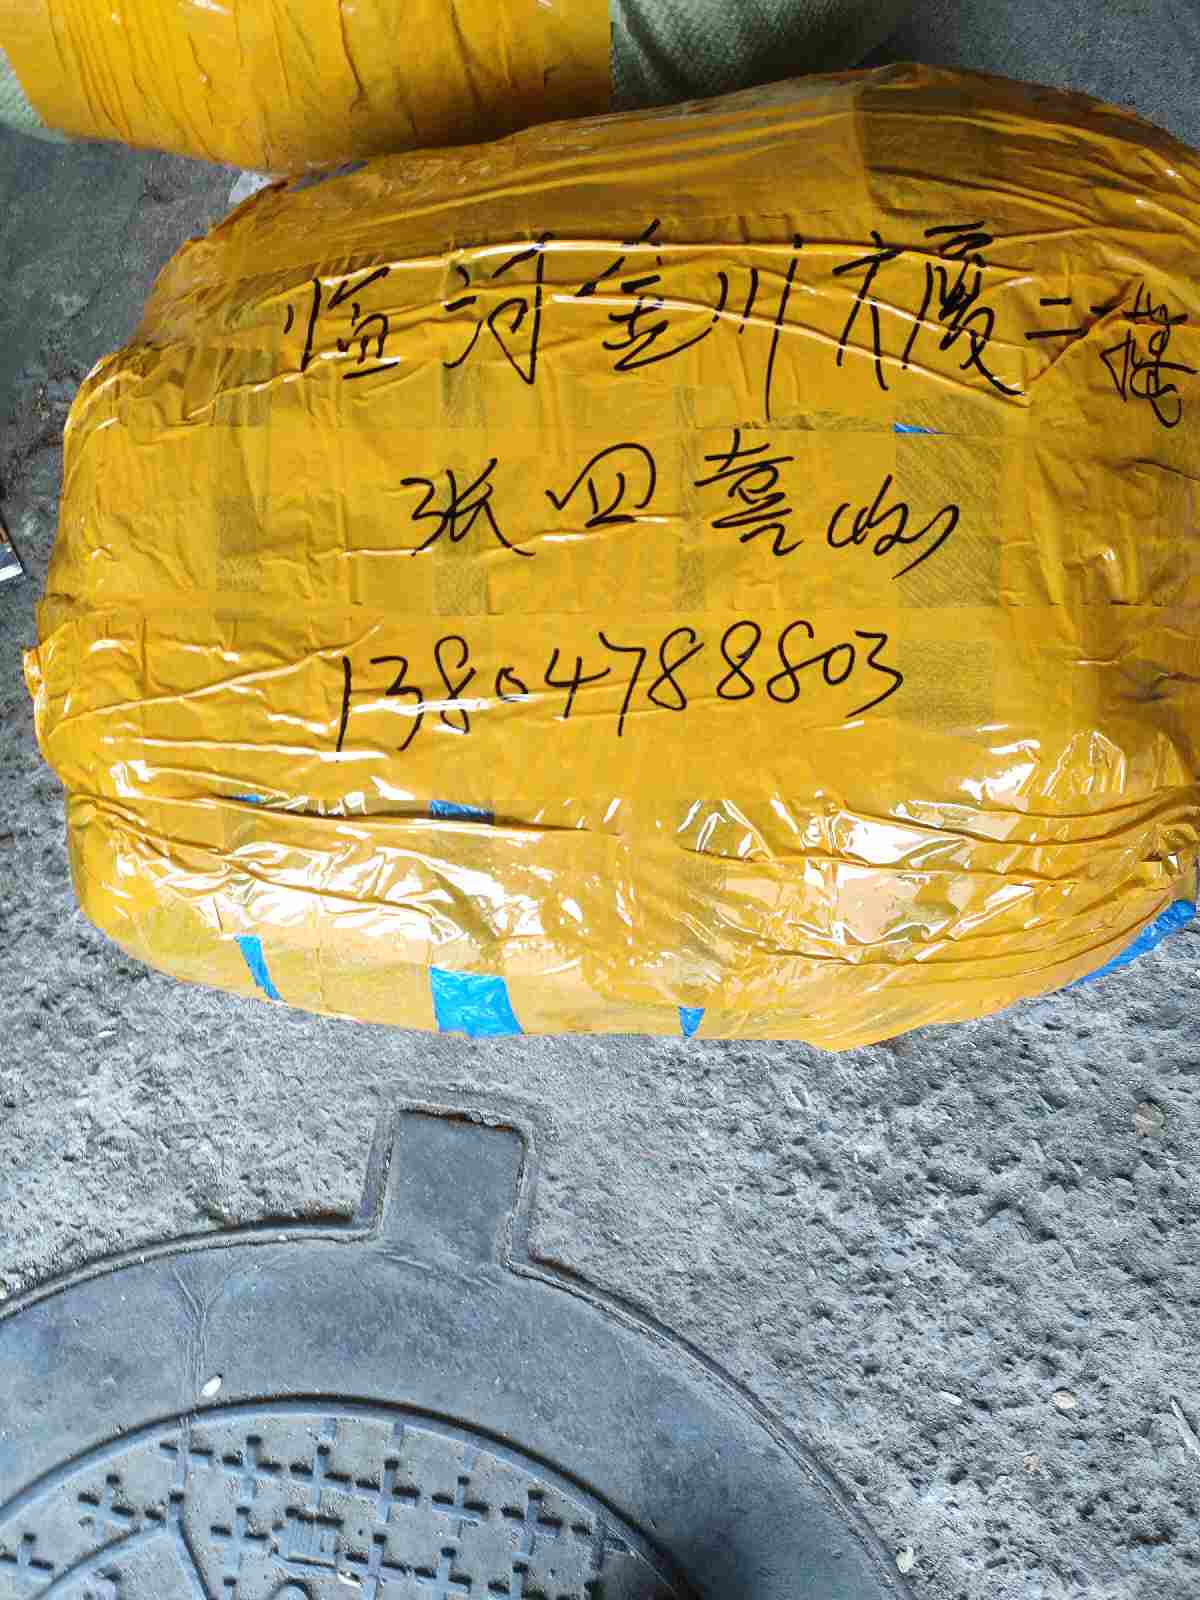 临河金川大厦二楼
张四喜收
13804788803